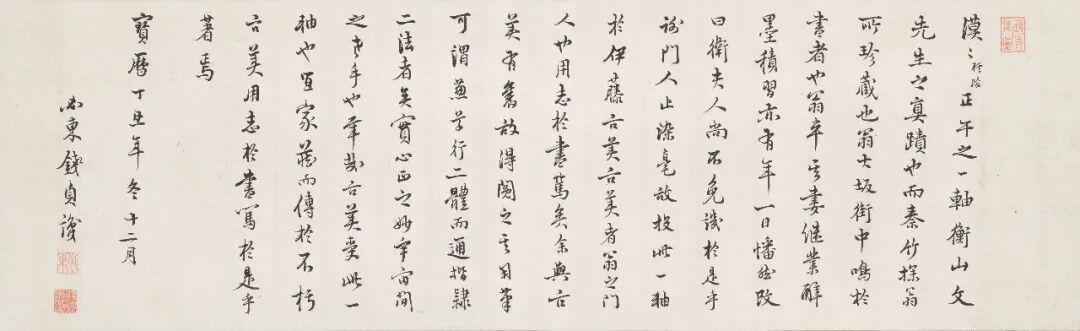 漠〻祖澹正午之一軸衡山文
先生之真蹟也而秦竹探翁
所珍藏也翁大坂街中鳴於
書者也翁卒其妻継業解
墨積習亦有年一日幡然改
曰衛夫人尚不免譏於是乎
謝門人止染毫故投此一軸
於伊藤言美言美者翁之門
人也用志於書篤矣余與言
美有舊故得閲之其用筆
可謂兼草行二體而通楷隷
二法者矣實心正之妙宇宙間
之老手也幸哉言美受此一
軸也宜家藏而傳於不朽
言美用志於書篤於是乎
著焉
寶曆丁丑年冬十二月
錢貞